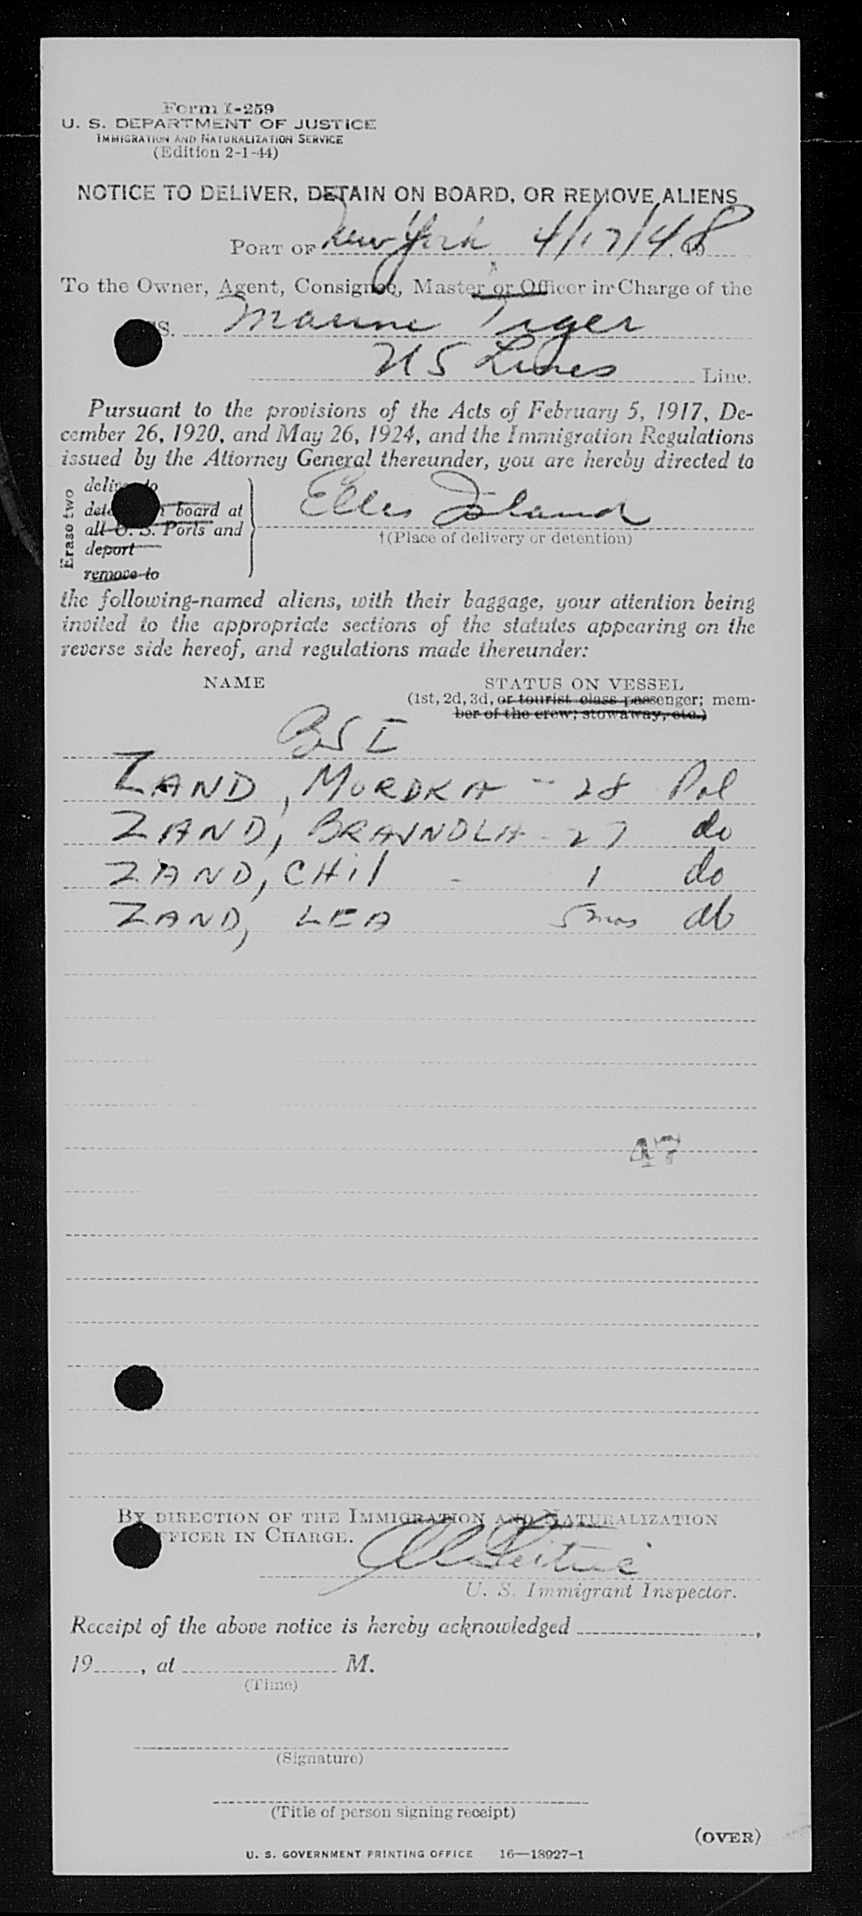 Form I-259
U. S. DEPARTMENT OF JUSTICE
IMMIGRATION AND NATURALIZATION SERVICE
(Edition 2-1-44)
NOTICE TO DELIVER, DETAIN ON BOARD, OR REMOVE ALIENS
PORT OF New York 4/17/48, 19
To the Owner, Agent, Consignee, Master or Officer in Charge of the
SS. Marine Tiger
US Lines Line.
Pursuant to the provisions of the Acts of February 5, 1917, De-
cember 26, 1920, and May 26, 1924, and the Immigration Regulations
issued by the Attorney General thereunder, you are hereby directed to
Erase two
deliver to
board at
all U. S. Ports and
deport
remove to
Ellis Island
†(Place of delivery or detention)
the following-named aliens, with their baggage, your attention being
invited to the appropriate sections of the statutes appearing on the
reverse side hereof, and regulations made thereunder:
NAME STATUS ON VESSEL
(1st, 2d, 3d, or tourist class passenger; mem-
ber of the crew; stowaway, etc.)
BSI
ZAND, MORDKA - 28 Pol
ZAND, BRAJNDLA - 27 do
ZAND, CHil - 1 do
ZAND, LEA 5 mos do
47
BY DIRECTION OF THE IMMIGRATION AND NATURALIZATION
OFFICER IN CHARGE.
U. S. Immigrant Inspector.
Receipt of the above notice is hereby acknowledged ,
19 , at M.
(Time)
(Signature)
(Title of person signing receipt)
(OVER)
U. S. GOVERNMENT PRINTING OFFICE 16—18927-1